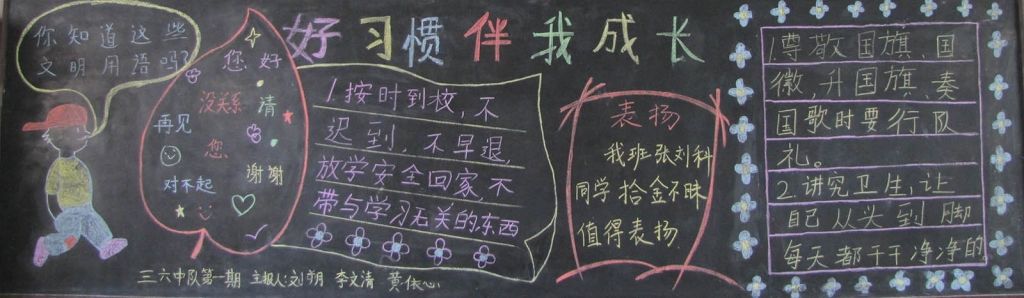 好习惯伴我成长
你知道这些
文明用语吗?
您好
没关系
请
再见
您
谢谢
对不起
1按时到校,不
迟到,不早退,
放学安全回家,不
带与学习无关的东西
表扬
我班张刘科
同学拾金不昧
值得表扬
1.尊敬国旗、国
徽,升国旗、奏
国歌时要行队
礼。
2.讲究卫生,让
自己从头到脚
每天都干干净净的
三六中队第一期 主办人:刘明 李文清 黄依心